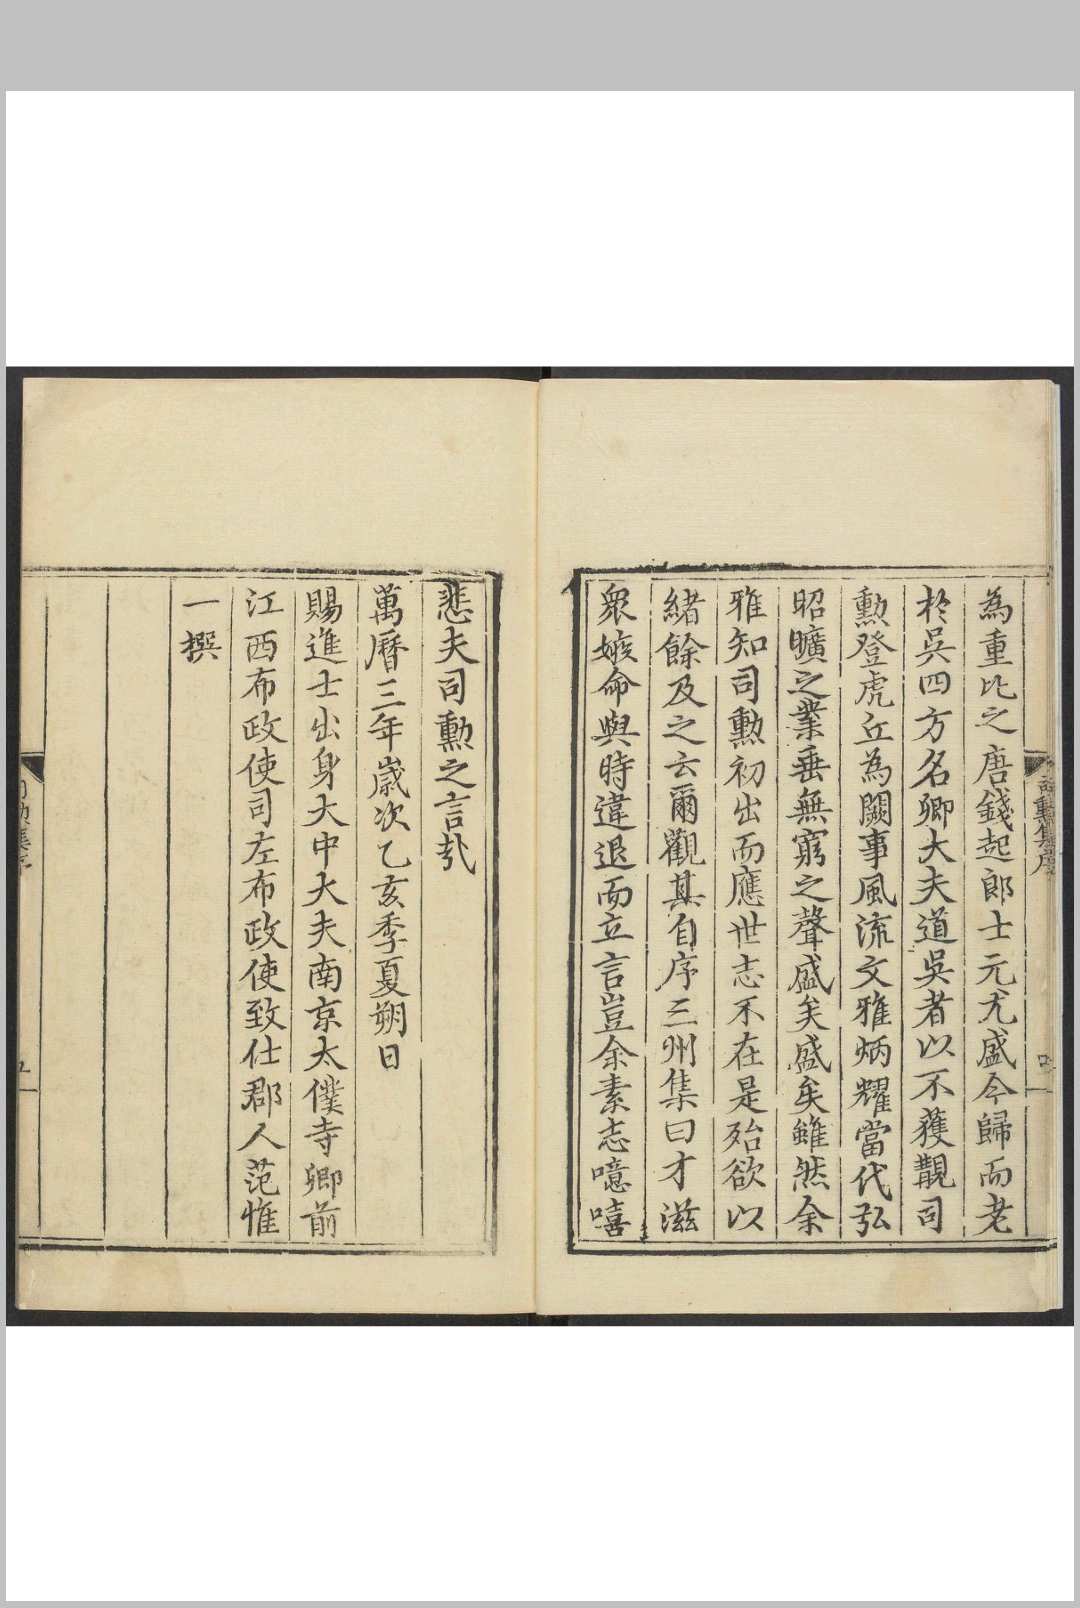 為重比之唐錢起郎士元尤盛今歸而老
於吳四方名卿大夫道吳者以不獲覯司
勳登虎丘為闕事風流文雅炳耀當代弘
昭曠之業垂無窮之聲盛矣盛矣雖然余
雅知司勳初出而應世志不在是殆欲以
緒餘及之云爾觀其自序三州集曰才滋
眾嫉命與時違退而立言豈余素志噫嘻
悲夫司勳之言哉
萬曆三年歲次乙亥季夏朔日
賜進士出身大中大夫南京太僕寺卿前
江西布政使司左布政使致仕郡人范惟
一撰